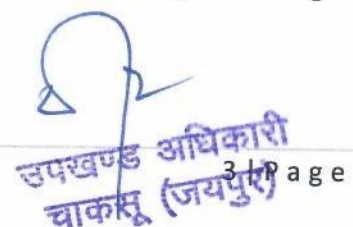 उपखण्ड अधिकारी
चाकसू (जयपुर)
3 | Page